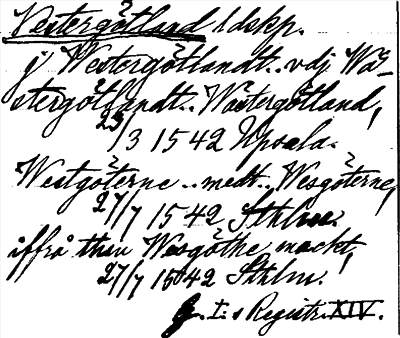 Vestergötland ldskp.
j Westergötlandt.. vdj Wä-
stergötlandt.. Wastergötland,
23/3 1542 Upsala.
Westgöterne .. medt.. Wesgöterne,
27/7 1542 Sthlm.
iffrå then Wesgöthe mackt,
27/7 1542 Sthlm.
G. I:s Registr. XIV.